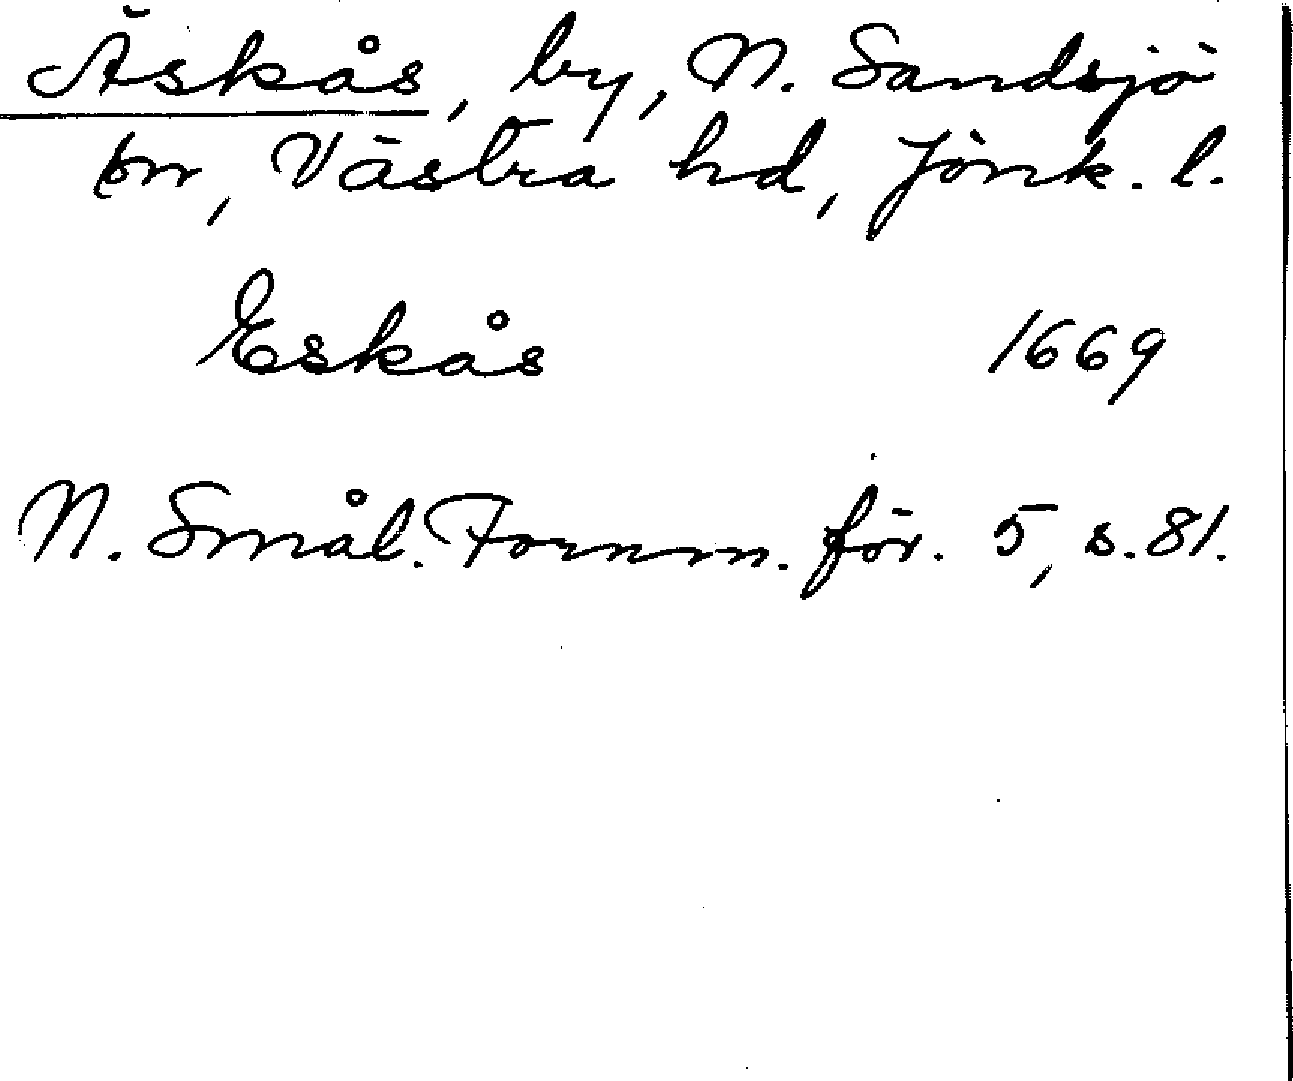 Äskås, by, N. Sandsjö
sn, Västra hd, Jönk. l.
Eskås 1669
N. Smål. Fornm. för. 5, s. 81.